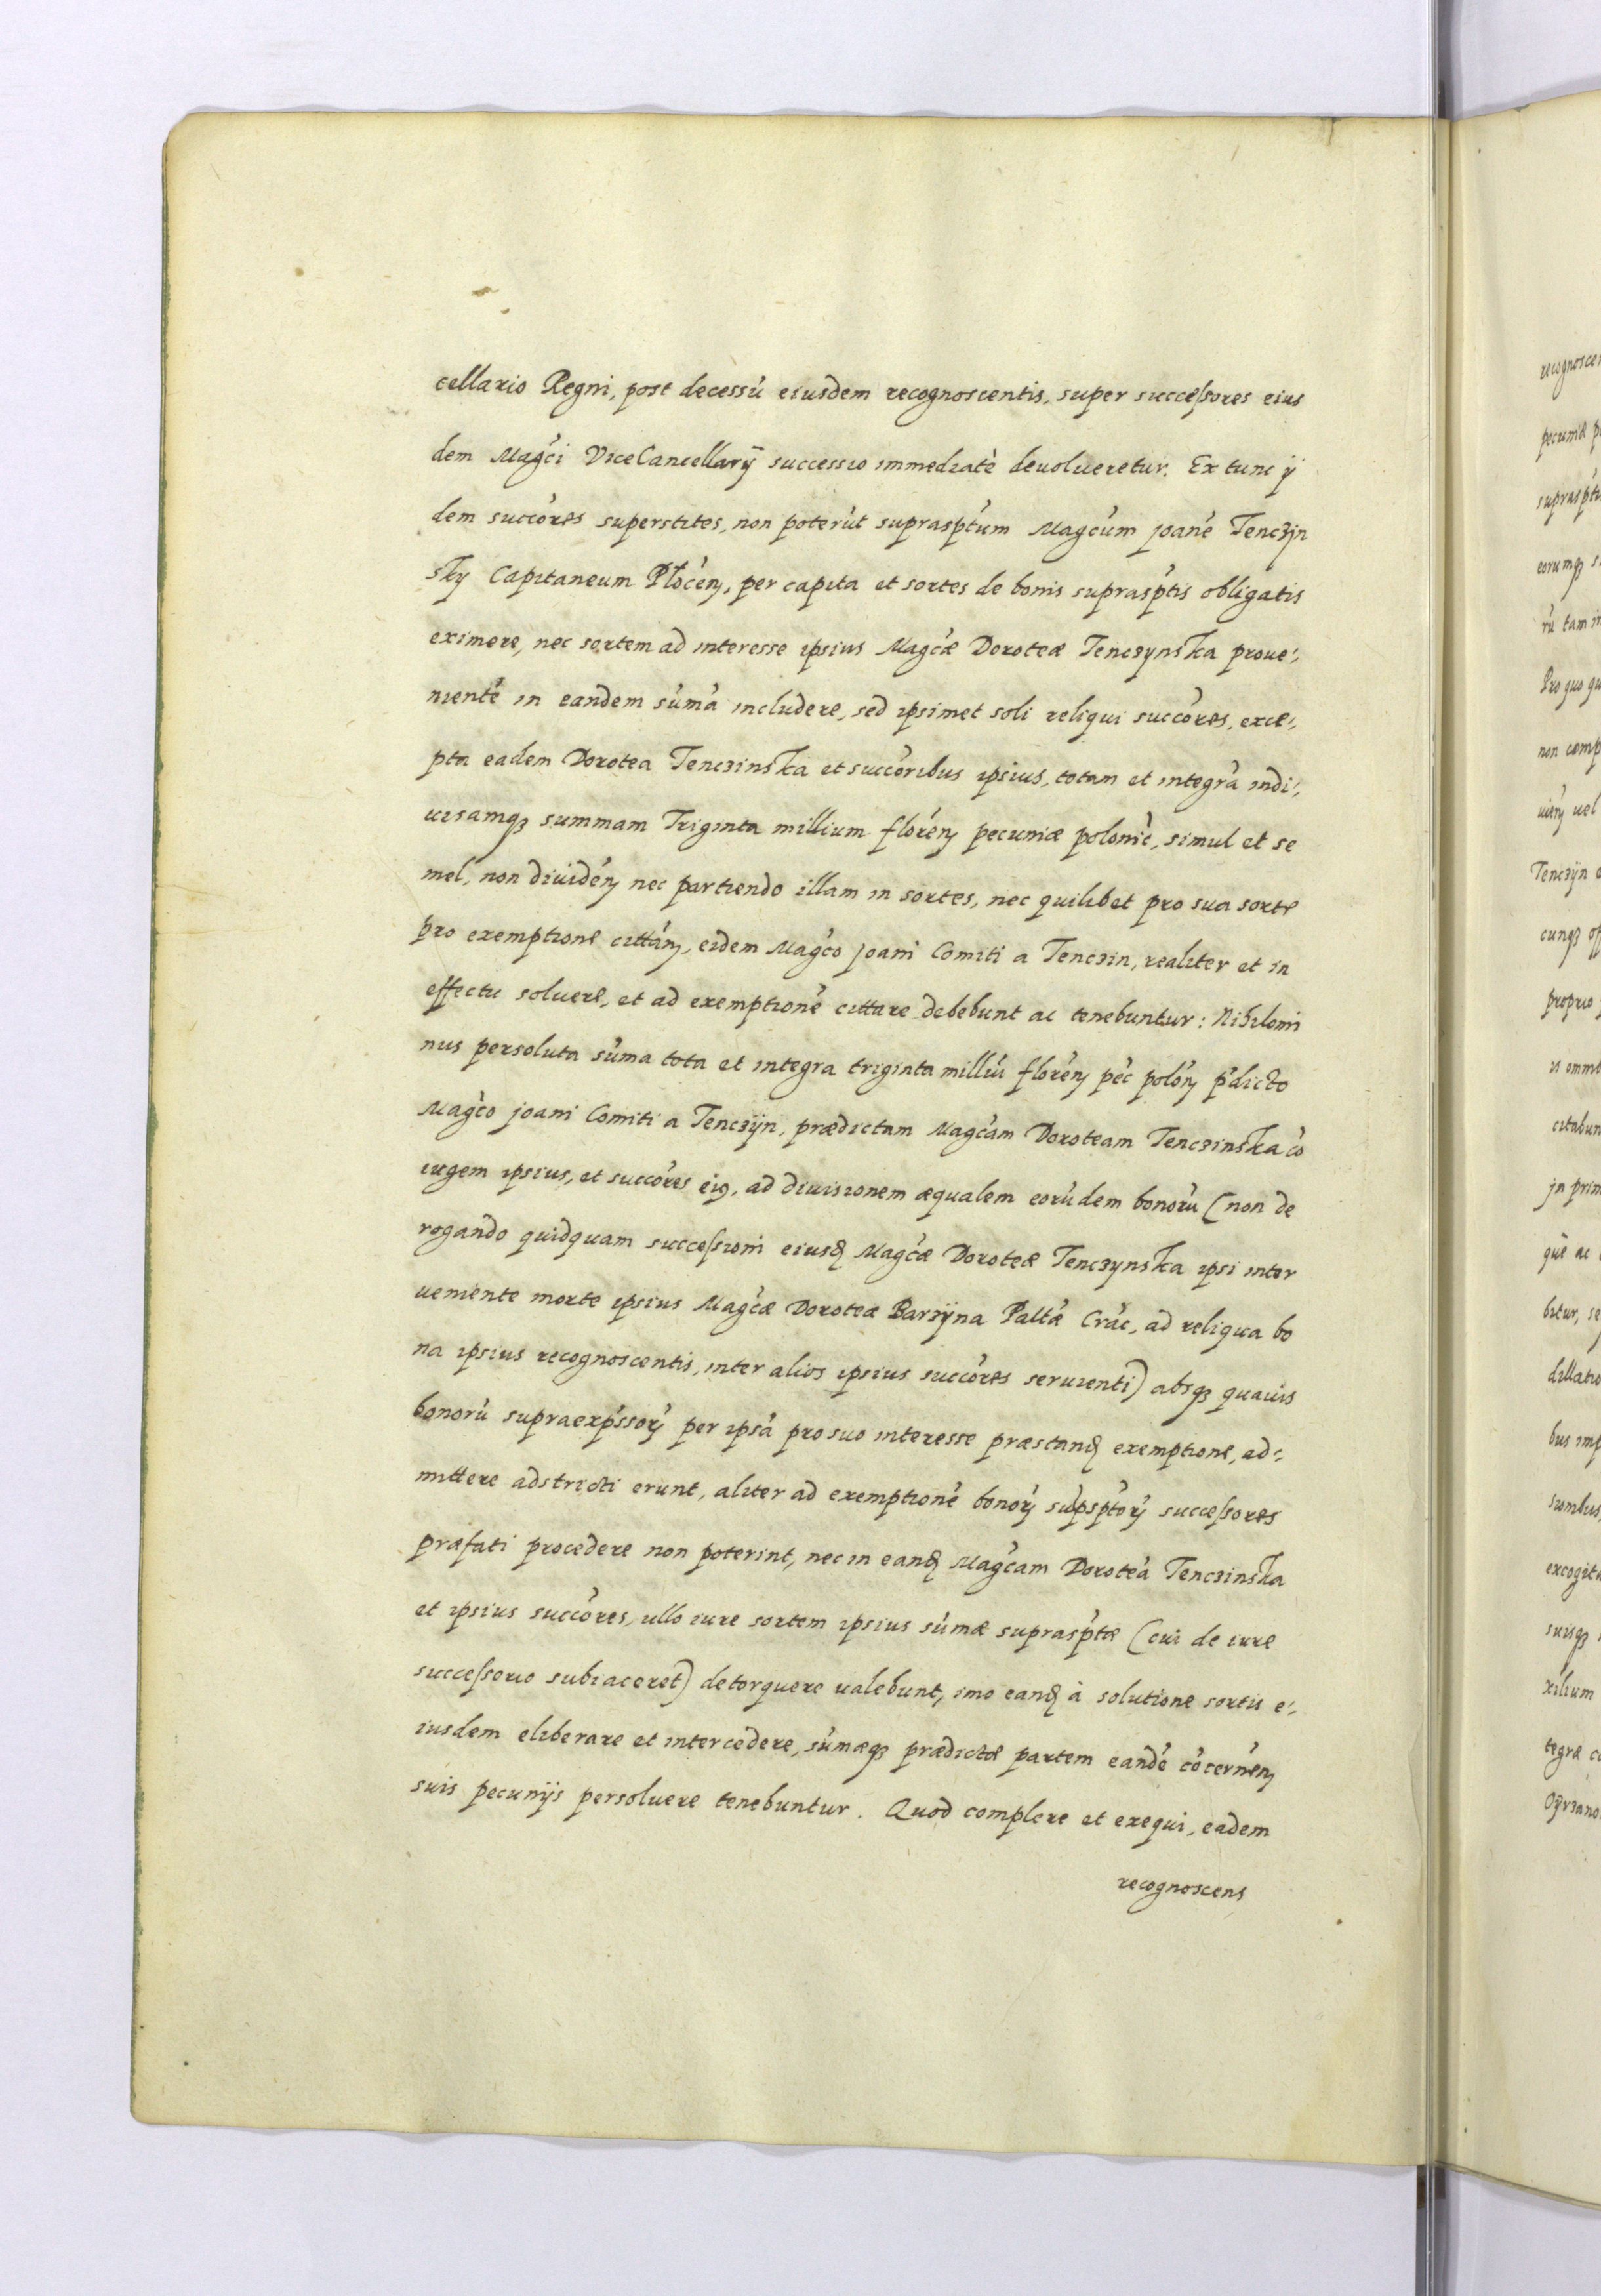 cellario Regni, post decessū eiusdem recognoscentis, super successores eius
dem Magći ViceCancellarÿ successio immediatè deuolueretur. Ex tunc ÿ
dem succóres superstites, non poterūt suprasp̃tum Magćum Joanē Tenczÿn
sky Capitaneum Płocéń, per capita et sortes de bonis suprasp̃tis obligatis
eximere, nec sortem ad interesse ipsius Magćæ Doroteæ Tenczynska proue-,
nientē in eandem sūmā includere, sed ipsimet soli reliqui succóres, exce-,
pta eadem Dorotea Tenczinska et succóribus ipsius, totam et integrā indi-,
uisamqȝ summam Triginta millium floréń pecuniæ polonić, simul et se
mel, non diuidéń nec partiendo illam in sortes, nec quilibet pro sua sorte
pro exemptione cittáń, eidem Magćo Joani Comiti a Tenczin, realiter et in
effectu soluere, et ad exemptionē cittare debebunt ac tenebuntur: Nihilomi
nus persoluta sūma tota et integra triginta milliū floréń péć polóń p̃dicto
Magćo Joani Comiti a Tenczÿn, prædictam Magćam Doroteam Tenczinska cō
iugem ipsius, et succóres eiꝰ, ad diuisionem æqualem eorūdem bonorū (non de
rogando quidquam successioni eiusdꝫ Magćæ Doroteæ Tenczynska ipsi inter
ueniente morte ipsius Magćæ Doroteæ Barzÿna Paltǽ Cráć, ad reliqua bo
na ipsius recognoscentis, inter alios ipsius succóres seruienti) absqȝ quauis
bonorū supraexp̃ssorꝫ per ipsā pro suo interesse præstandꝫ exemptione, ad-,
mittere adstricti erunt, aliter ad exemptionē bonorꝫ sup̃sp̃torꝫ successores
præfati procedere non poterint, nec in eandꝫ Magćam Doroteā Tenczinska
et ipsius succóres, ullo iure sortem ipsius sūmæ suprasp̃tæ (cui de iure
successorio subiaceret) detorquere ualebunt, imo eandꝫ à solutione sortis e-,
iusdem eliberare et intercedere, sūmæqȝ prædictæ partem eandē cōcernéń
suis pecunÿs persoluere tenebuntur. Quod complere et exequi, eadem
recognoscens